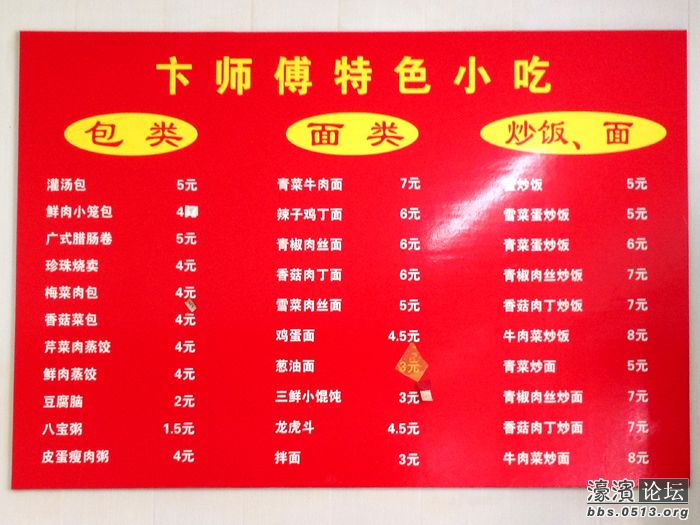 卞师傅特色小吃
包类
灌汤包 5元
鲜肉小笼包 4
广式腊肠卷 5元
珍珠烧卖 4元
梅菜肉包 4元
香菇菜包 4元
芹菜肉蒸饺 4元
鲜肉蒸饺 4元
豆腐脑 2元
八宝粥 1.5元
皮蛋瘦肉粥 4元
面类
青菜牛肉面 7元
辣子鸡丁面 6元
青椒肉丝面 6元
香菇肉丁面 6元
雪菜肉丝面 5元
鸡蛋面 4.5元
葱油面 3元
三鲜小馄饨 3元
龙虎斗 4.5元
拌面 3元
炒饭、面
炒饭 5元
雪菜蛋炒饭 5元
青菜蛋炒饭 6元
青椒肉丝炒饭 7元
香菇肉丁炒饭 7元
牛肉菜炒饭 8元
青菜炒面 5元
青椒肉丝炒面 7元
香菇肉丁炒面 7元
牛肉菜炒面 8元
濠滨论坛
bbs.0513.org